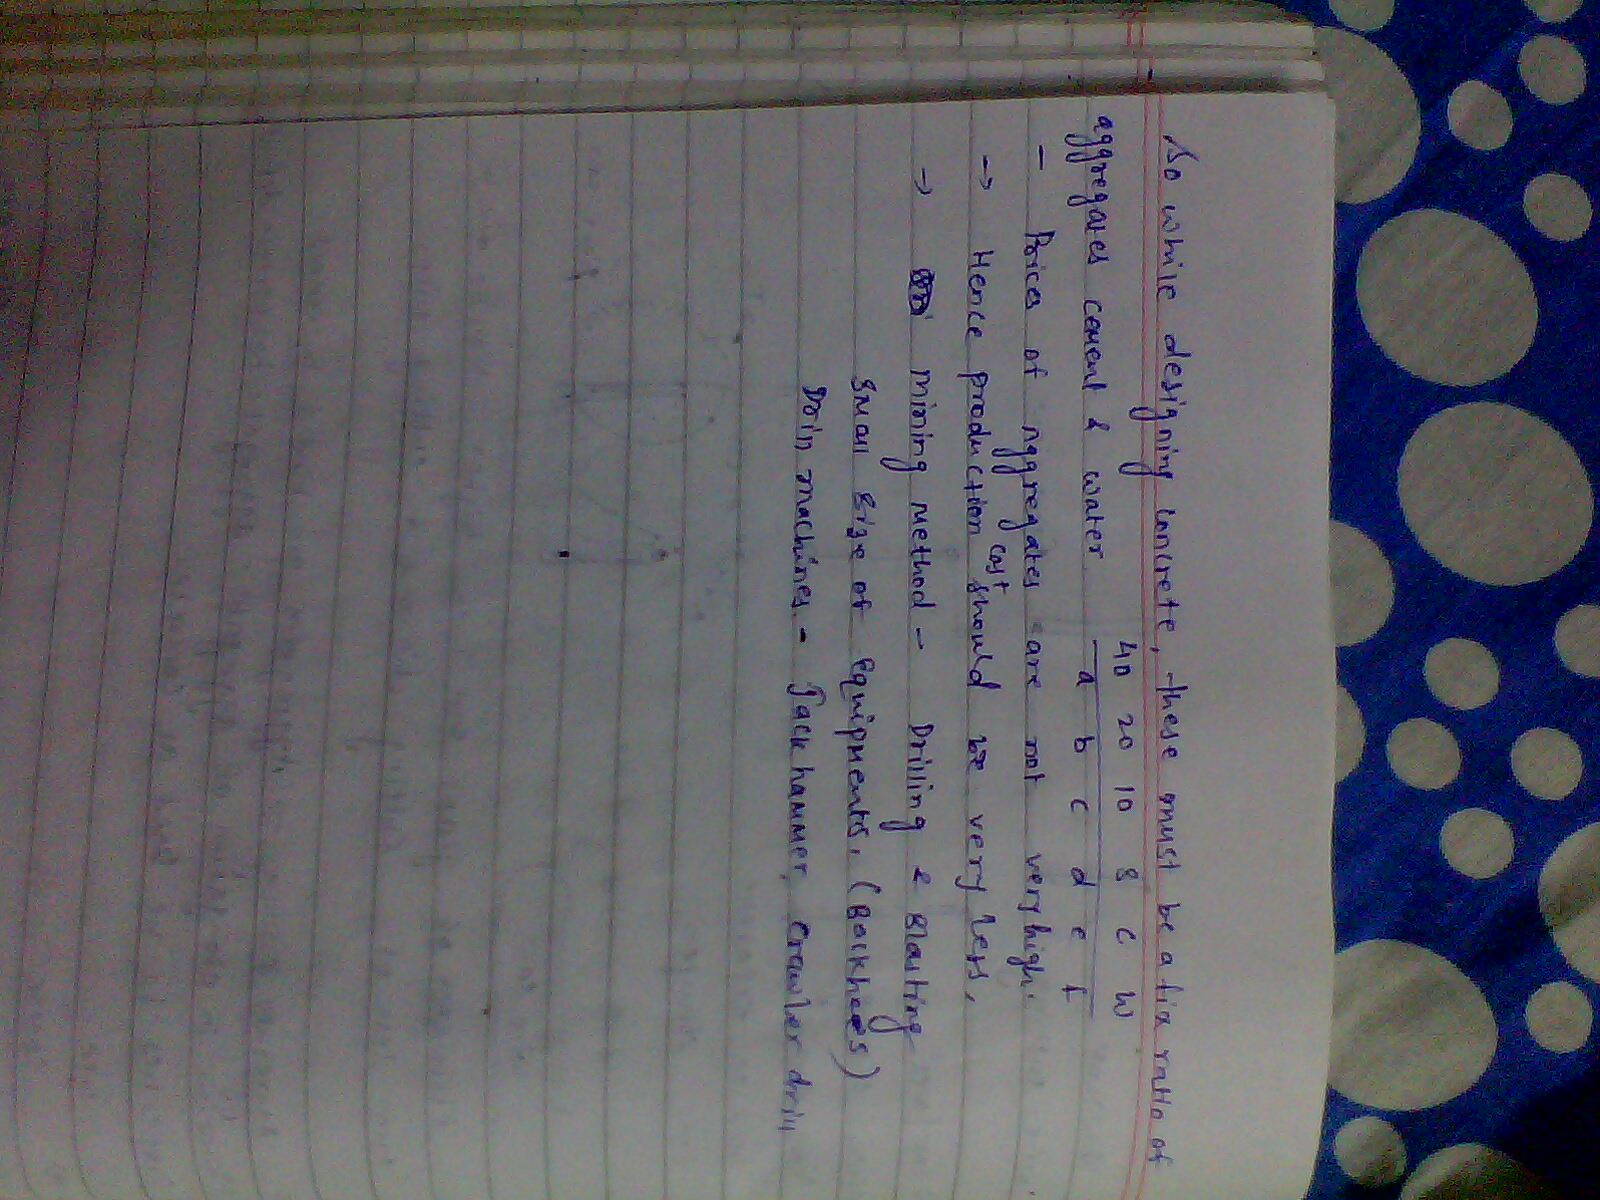 So while designing concrete, these must be a fix ratio of
40 20 10 8 c w
aggregates cement & water a b c d e f
- Prices of Aggregates are not very high.
→ Hence production cost should be very less,
→ mining method - Drilling & Blasting
Small size of equipments, (Backhoes)
Drill machines - Jack hammer, crawler drill